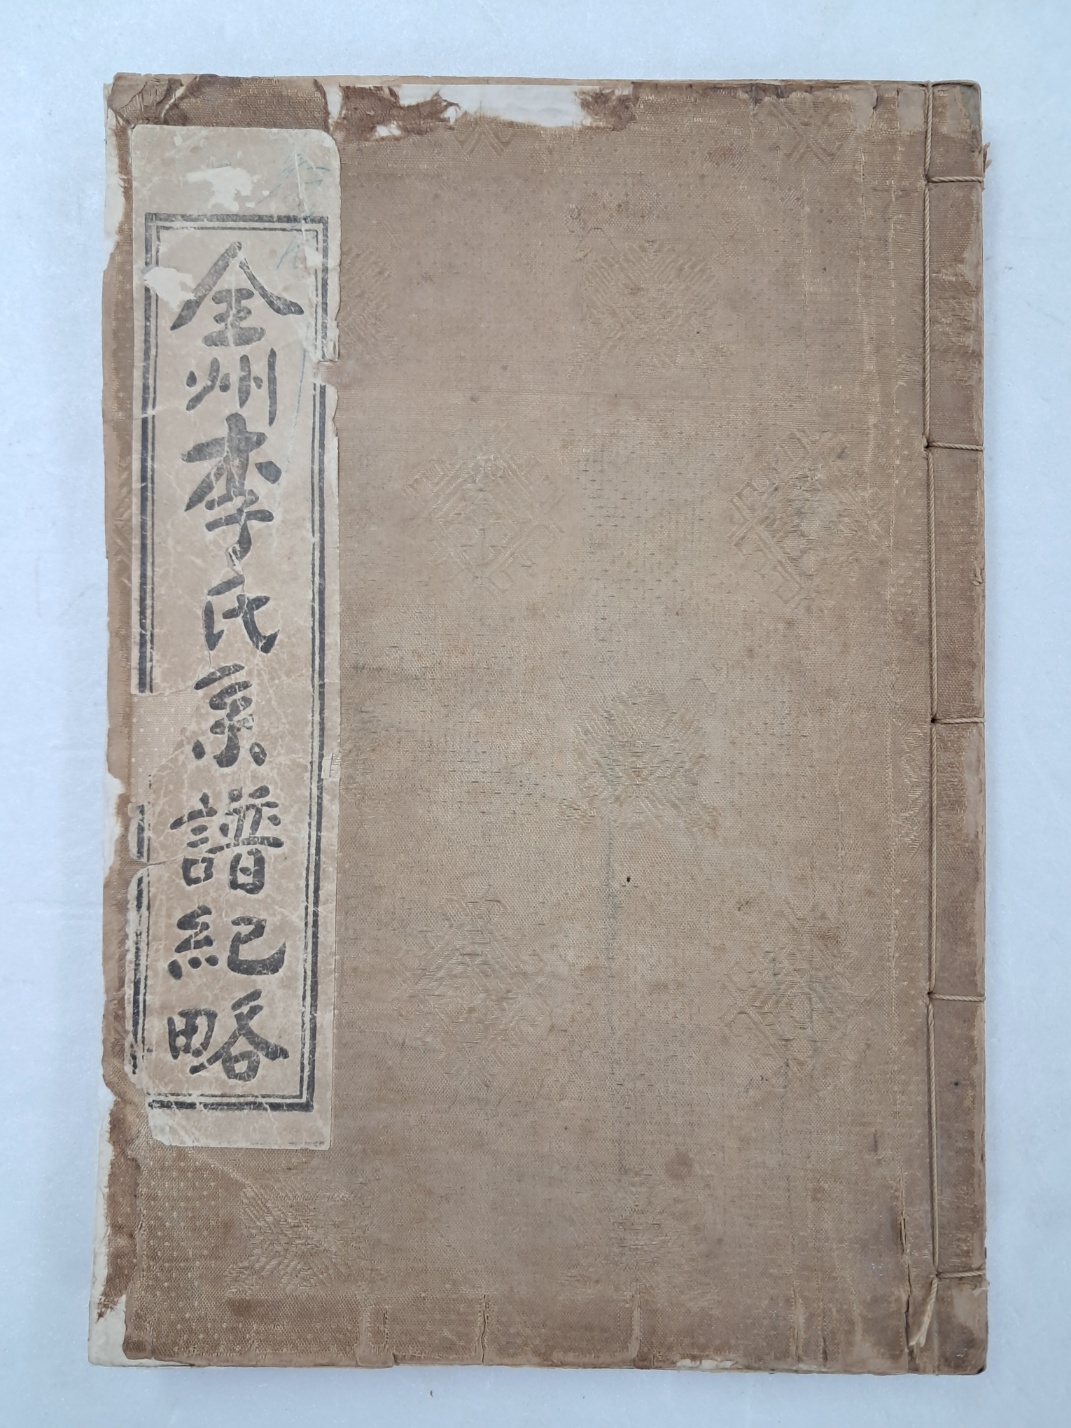 全州李氏系譜紀略